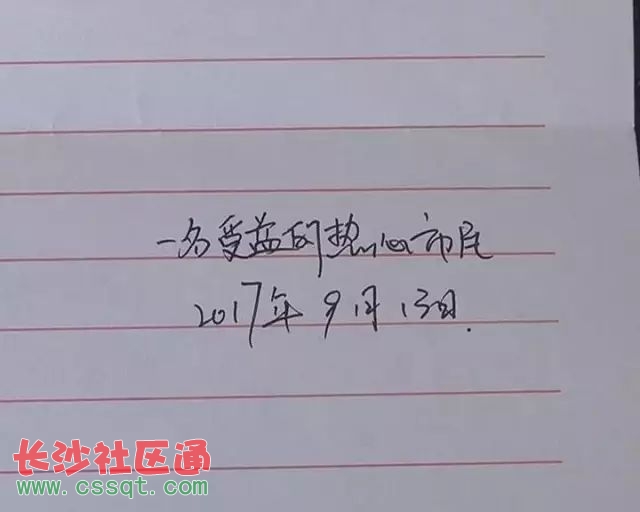 一名受益的热心市民
2017年9月13日.
长沙社区通
www.cssqt.com